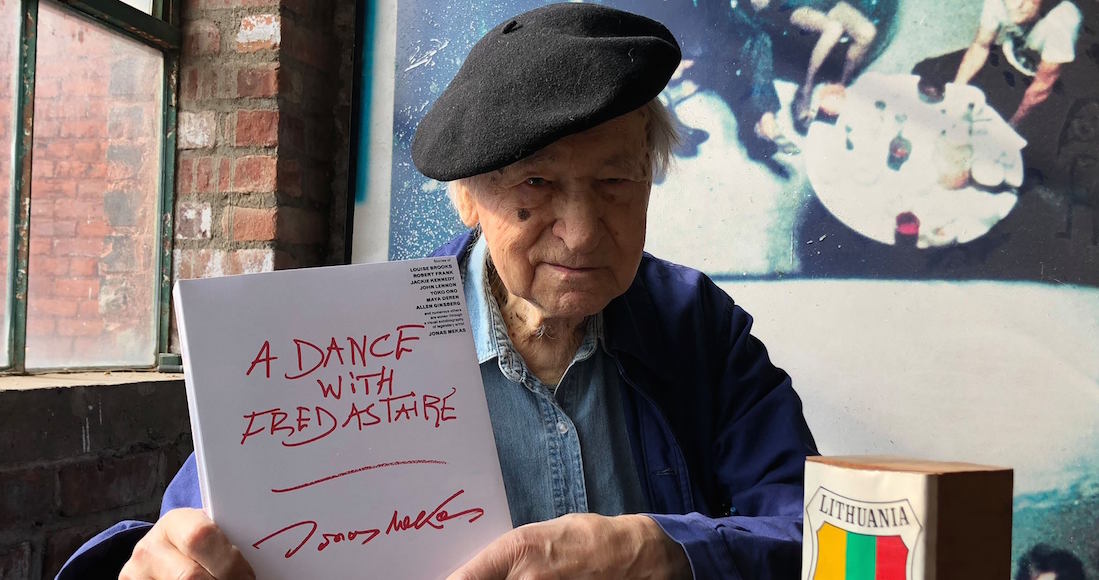 Stories of
LOUISE BROOKS
ROBERT FRANK
JACKIE KENNEDY
JOHN LENNON
YOKO ONO
MAYA DEREN
ALLEN GINSBERG
and numerous others
are woven through
a visual autobiography
of legendary artist
JONAS MEKAS
A DANCE
WITH
FRED ASTAIRE
Jonas Mekas
LITHUANIA